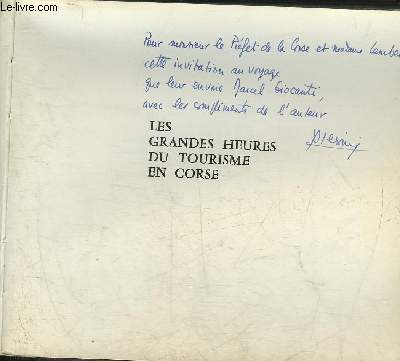 Le-livre.com
Pour monsieur le Préfet de la Corse et madame Lamber
cette invitation au voyage
que leur envoie Marcel Giocanti,
avec les compliments de l'auteur
LES
GRANDES HEURES
DU TOURISME
EN CORSE